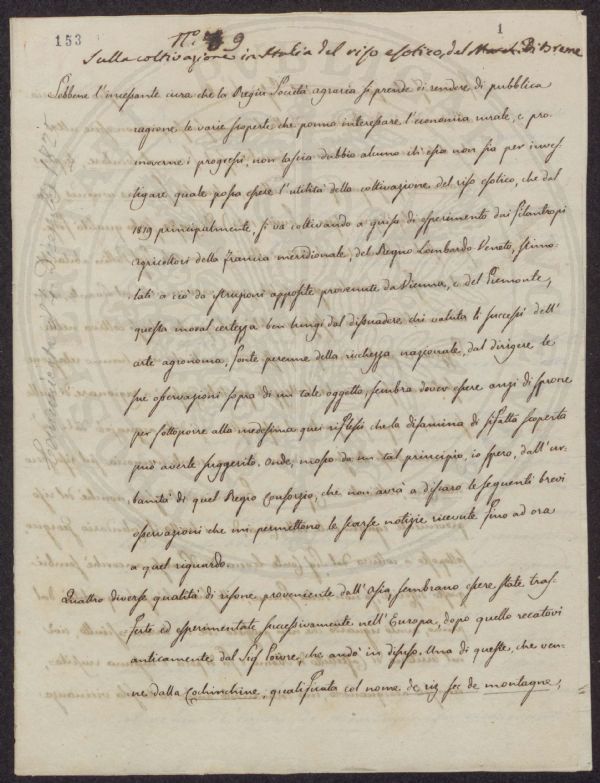 153
1
N.º 9
Sulla coltivazione in Italia del riso esotico, del March. Di Breme
Sebbene l'incessante cura che la Regia Società agraria si prende di rendere di pubblica
ragione le varie scoperte che ponno interessare l'economia rurale, e pro
muoverne i progressi, non lascia dubbio alcuno ch'essa non sia per inves
tigare quale possa essere l'utilità della coltivazione del riso esotico, che dal
1819 principalmente, si va coltivando a guisa di esperimento dai filantropi
agricoltori della Francia meridionale, del Regno Lombardo Veneto, stimo-
lati a ciò da istruzioni apposite provenute da Vienna, e del Piemonte,
questa moral certezza ben lungi dal dissuadere chi valuta li successi dell'
arte agronoma, fonte perenne della ricchezza nazionale, dal dirigere le
sue osservazioni sopra di un tale oggetto, sembra dover essere anzi di sprone
per sottoporre alla medesima quei riflessi che la disamina di sifatta scoperta
può averle suggerito. Onde, mosso da un tal principio, io spero, dall'ur-
banità di quel Regio Consorzio, che non avrà a discaro le seguenti brevi
osservazioni che mi permettono le scarse notizie ricevute fino ad ora
a quel riguardo.
Quattro diverse qualità di risone proveniente dall'Asia, sembrano essere state tras-
ferte ed esperimentate successivamente nell'Europa, dopo quello recatovi
anticamente dal Sig. Poivre, che andò in disuso. Una di queste, che ven-
ne dalla Cochinchine, qualificata col nome de riz sec de montagne,